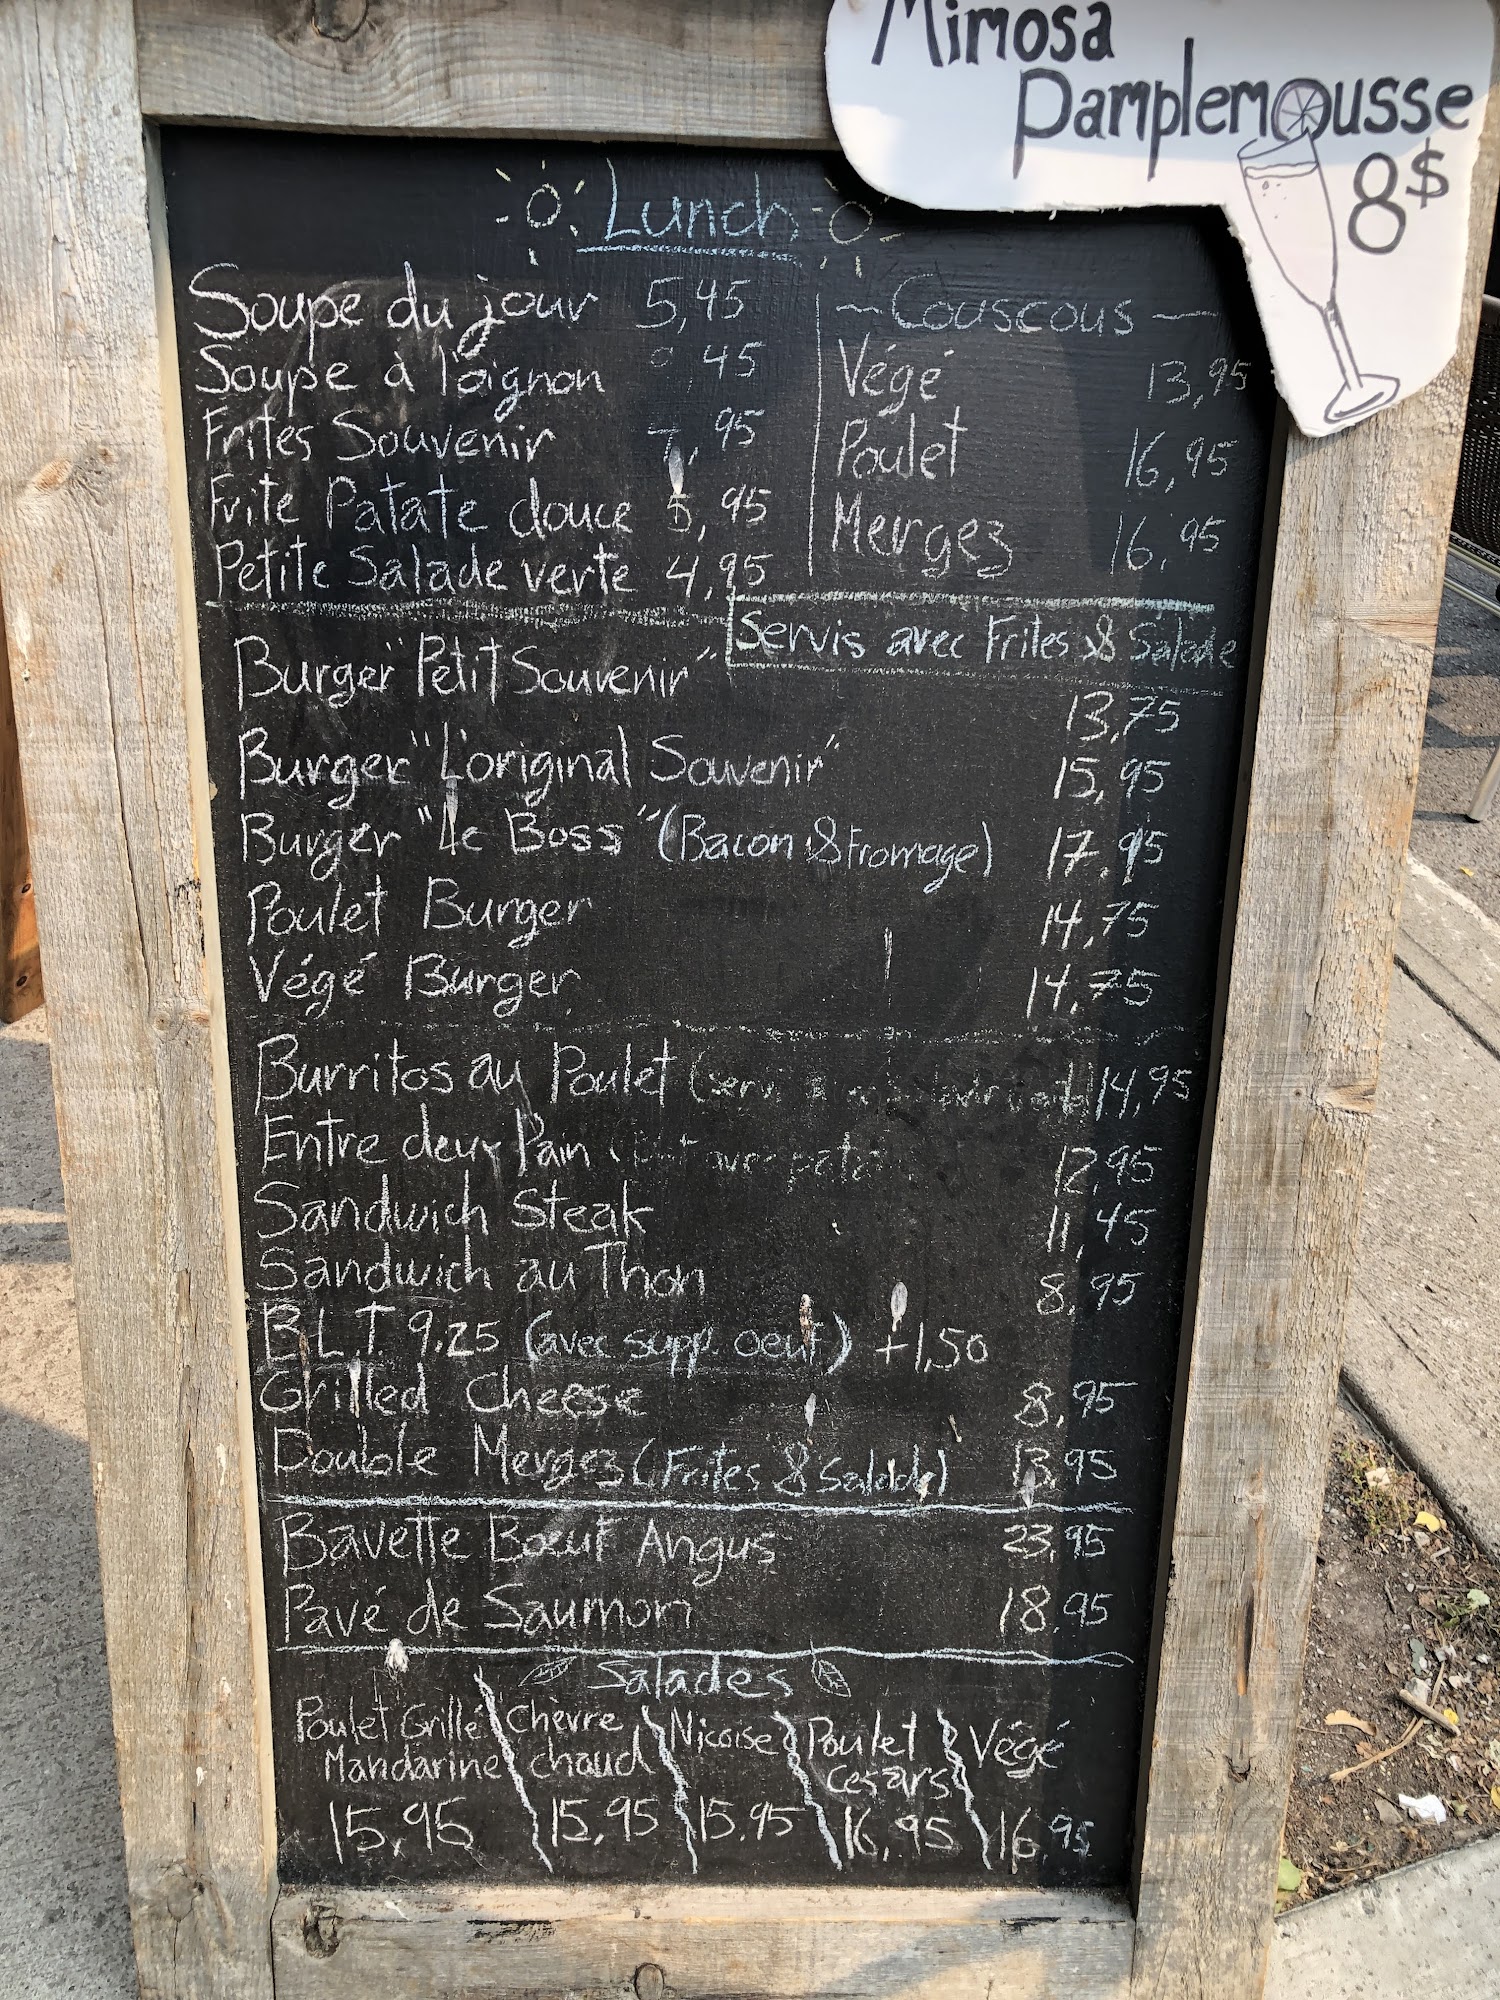 Mimosa
Pamplemousse
8$
Lunch
Soupe du jour 5,45
Soupe à l'oignon ,45
Frites Souvenir ,95
Frite Patate douce 5,95
Petite Salade verte 4,95
~Couscous~
Végé 13,95
Poulet 16,95
Mergez 16,95
Servis avec Frites & Salade
Burger "Petit Souvenir" 13,75
Burger "L'original Souvenir" 15,95
Burger "Le Boss" (Bacon & Fromage) 17.95
Poulet Burger 14,75
Végé Burger 14.75
Burritos au Poulet 14,95
Entre deux Pain 12,95
Sandwich Steak 11,45
Sandwich au Thon 8,95
B.L.T. 9.25 (avec supp. oeuf) +1,50
Grilled Cheese 8,95
Double Mergez (Frites & Salade) 13,95
Bavette Bœuf Angus 23,95
Pavé de Saumon 18,95
Salades
Poulet Grillé
Mandarine
15,95
Chèvre
chaud
15,95
Nicoise
15.95
Poulet
cesars
16,95
Végé
16,95